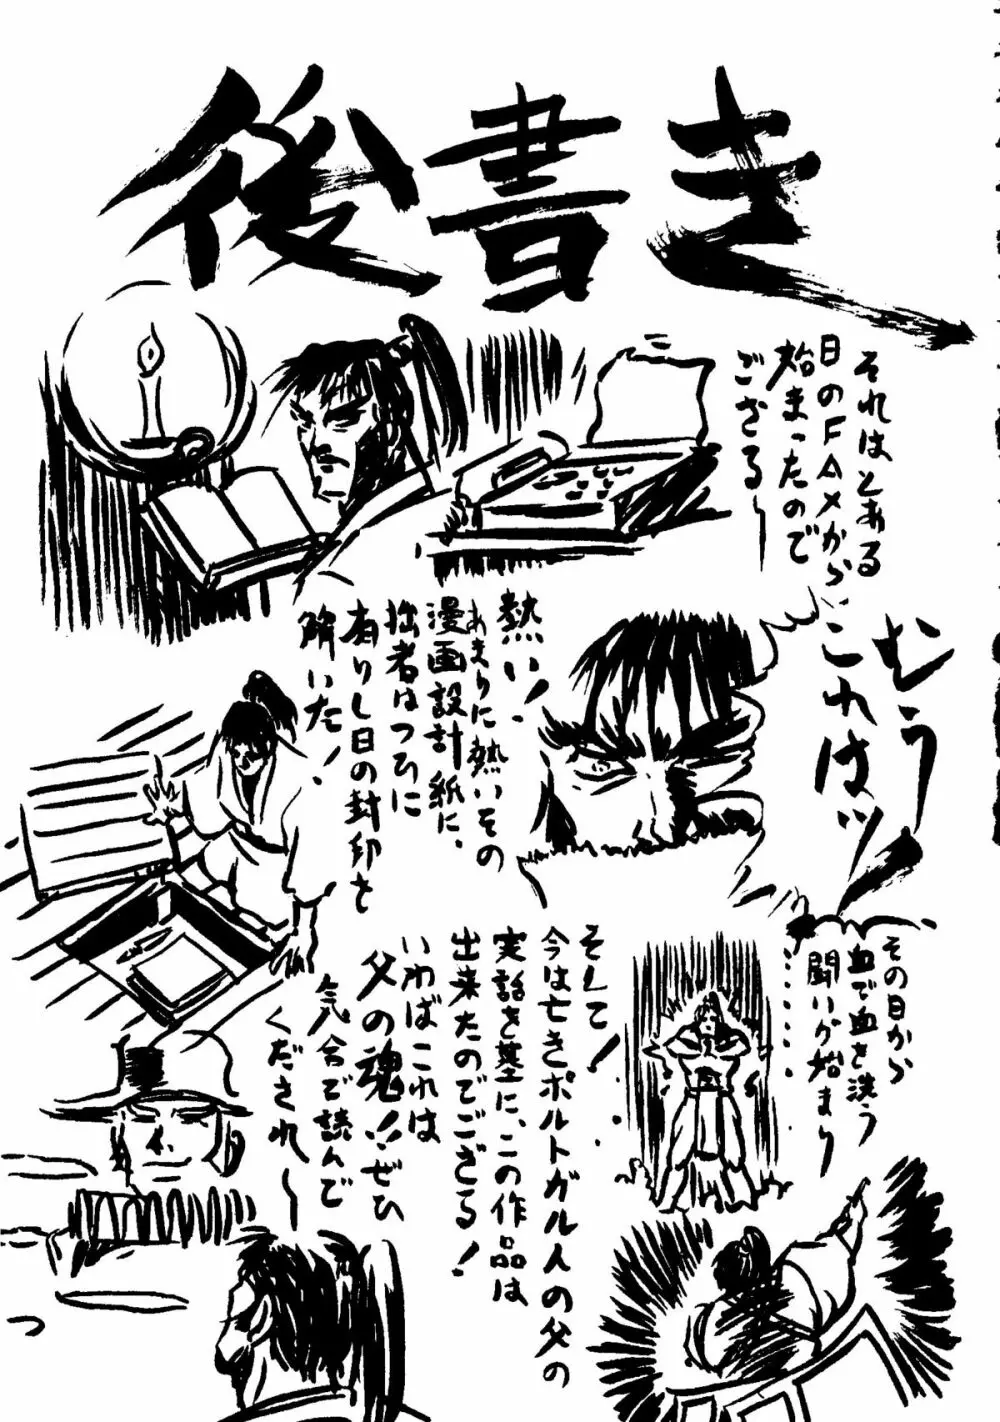 後書き
それはとある
日のFAXから
始まったので
ござる〜
むうう
これはッ!
熱い!
あまりに熱いその
漫画設計紙に、
拙者はついに
有りし日の封印を
解いた!
その日から
血で血を洗う
闘いが始まり
……
そして!
今は亡きポルトガル人の父の
実話を基に、この作品は
出来たのでござる!
いわばこれは
父の魂!!ぜひ
気合で読んで
くだされ〜